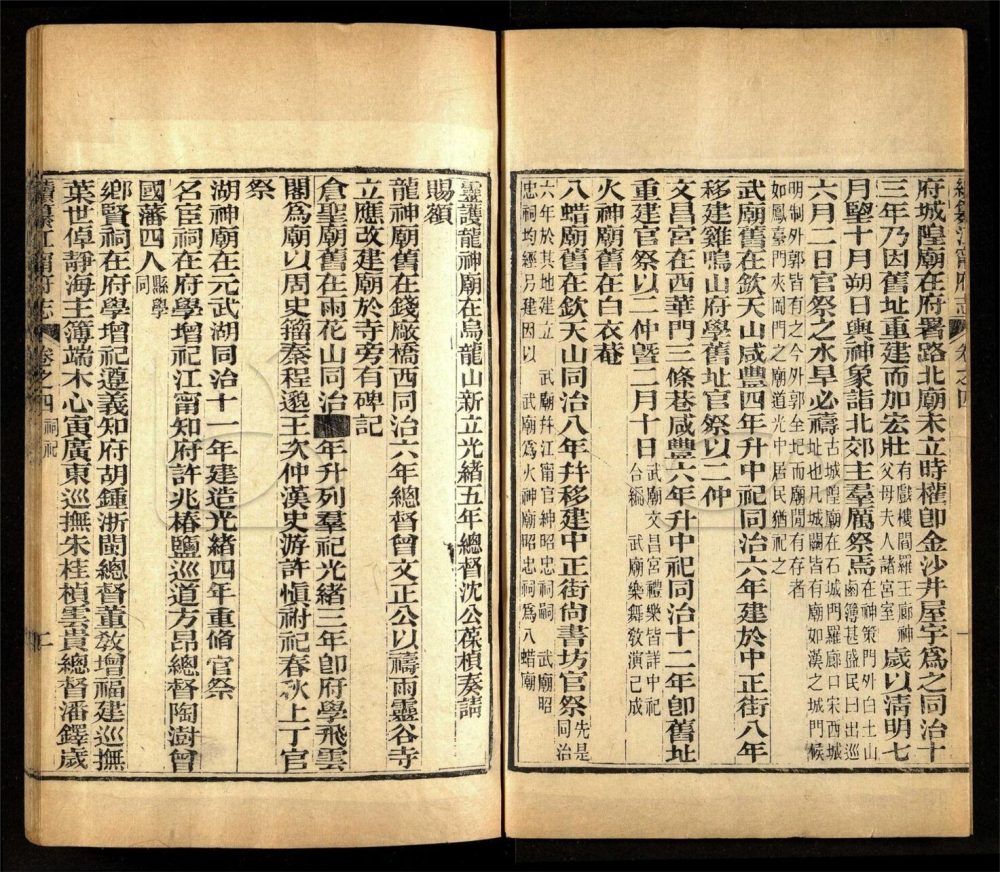 府城隍廟在府署路北廟未立時權卽金沙井屋宇爲之同治十
三年乃因舊址重建而加宏壯有戲樓閻羅王廊神父母夫人諸宮室歲以淸明七
月朢十月朔日輿神象詣北郊主羣厲祭焉在神策門外白土山鹵簿甚盛民曰出巡
六月二日官祭之水旱必禱古城隍廟在石城門羅廊口宋西城址也凡城闕皆有廟如漢之城門候
明制外郭皆有之今外郭全圮而廟閒有存者
如鳳臺門夾岡門之廟道光中居民猶祀之
武廟舊在欽天山咸豐四年升中祀同治六年建於中正街八年
移建雞鳴山府學舊址官祭以二仲
文昌宮在西華門三條巷咸豐六年升中祀同治十二年卽舊址
重建官祭以二仲曁二月十日武廟文昌宮禮樂皆詳中祀合編 武廟樂舞敎演已成
火神廟舊在白衣菴
八蜡廟舊在欽天山同治八年幷移建中正街尙書坊官祭先是同治
六年於其地建立 武廟幷江甯官紳昭忠祠嗣 武廟昭
忠祠均經另建因以 武廟爲火神廟昭忠祠爲八蜡廟
靈護龍神廟在烏龍山新立光緖五年總督沈公葆楨奏請
賜額
龍神廟舊在錢廠橋西同治六年總督曾文正公以禱雨靈谷寺
立應改建廟於寺旁有碑記
倉聖廟舊在雨花山同治年升列羣祀光緖三年卽府學飛雲
閣爲廟以周史籀秦程邈王次仲漢史游許愼祔祀春秋上丁官
祭
湖神廟在元武湖同治十一年建造光緖四年重脩官祭
名臣祠在府學增祀江甯知府許兆椿鹽巡道方昂總督陶澍曾
國藩四人縣學同
鄕賢祠在府學增祀遵義知府胡鍾浙閩總督董敎增福建巡撫
葉世倬靜海主簿端木心寅廣東巡撫朱桂楨雲貴總督潘鐸歲
續纂江甯府志 卷之四 祠祀 二